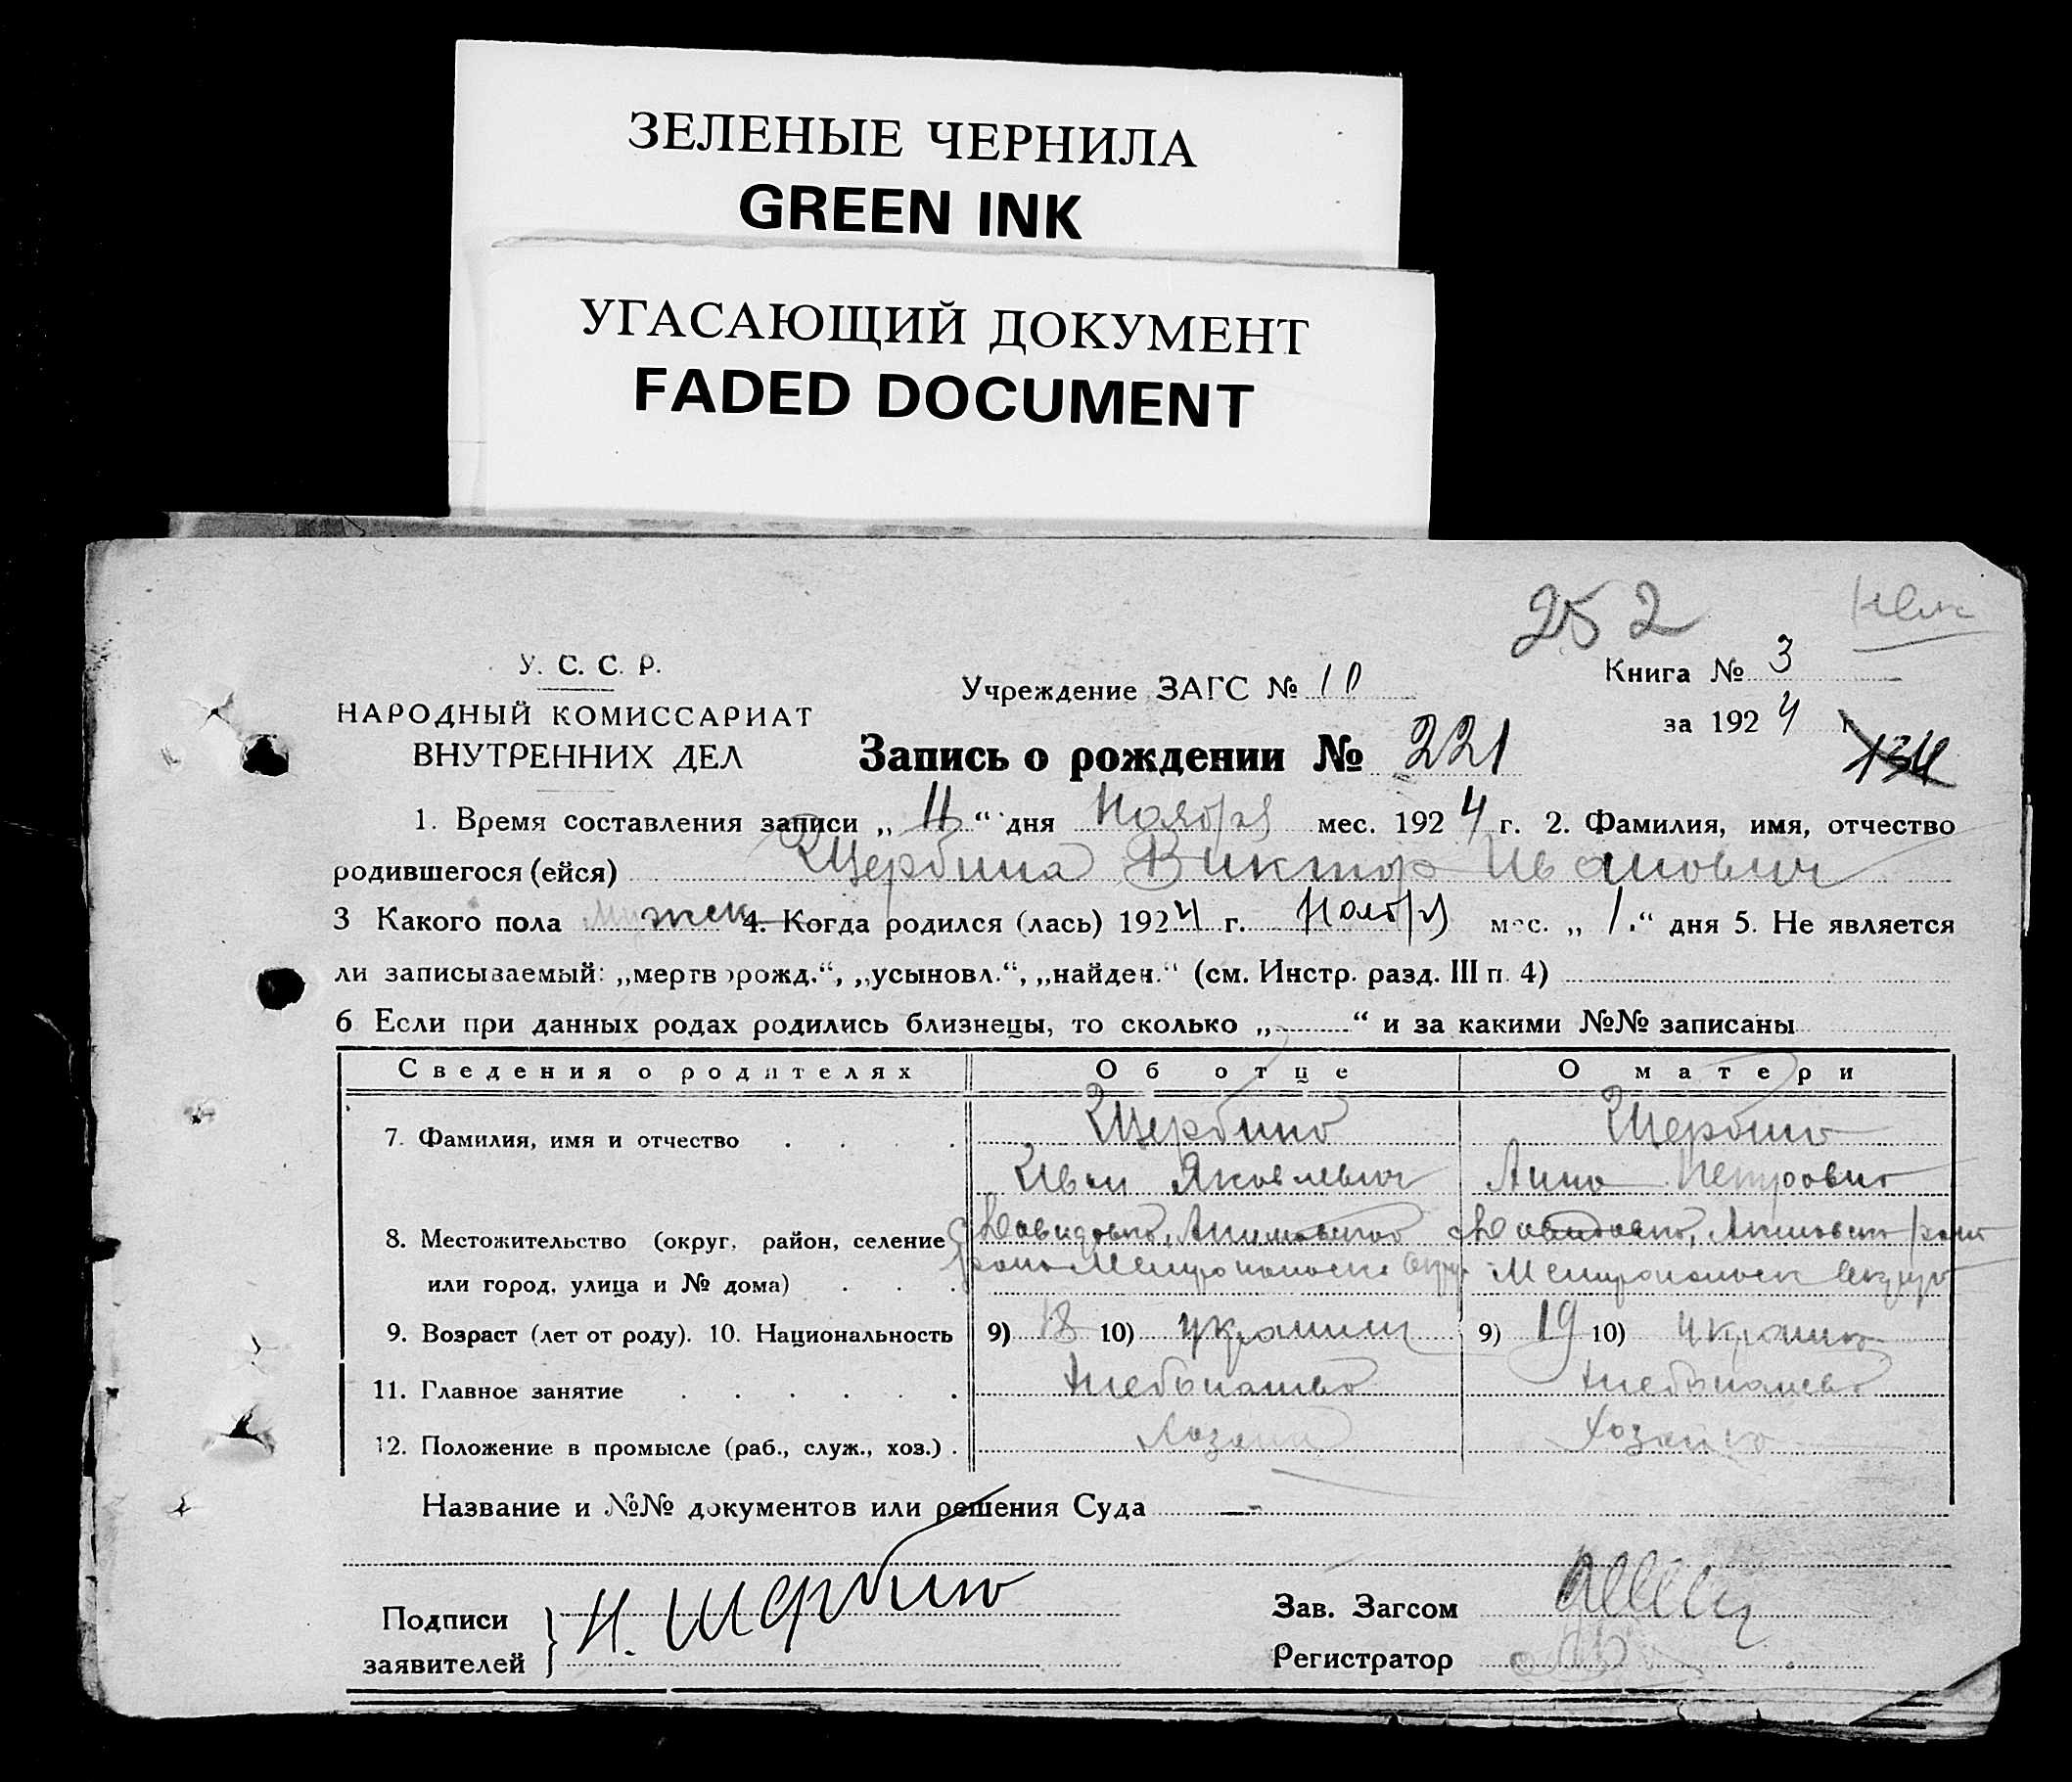 ЗЕЛЕНЫЕ ЧЕРНИЛА
GREEN INK
УГАСАЮЩИЙ ДОКУМЕНТ
FADED DOCUMENT
252
У. С. С. Р.
Учреждение ЗАГС № 10
Книга № 3
НАРОДНЫЙ КОМИССАРИАТ
за 1924 г
ВНУТРЕННИХ ДЕЛ
Запись о рождении № 221
134
1. Время составления записи „ 11 “ дня Ноября мес. 1924 г. 2. Фамилия, имя, отчество
родившегося (ейся) Щербина Виктор Иванович
3 Какого пола Мужск 4. Когда родился (лась) 1924 г. Ноября мес. „ 1. “ дня 5. Не является
ли записываемый: „мертворожд.“, „усыновл.“, „найден.“ (см. Инстр. разд. III п. 4)
6 Если при данных родах родились близнецы, то сколько „ “ и за какими №№ записаны
Сведения о родителях Об отце О матери
7. Фамилия, имя и отчество Щербина Щербина
Иван Яковлевич Анна Петровна
8. Местожительство (округ, район, селение Давидовка, Акимовского Давидовка, Акимовск райо
или город, улица и № дома) Мелитопольск Округ Мелитопольск Округа
9. Возраст (лет от роду). 10. Национальность 9) 18 10) украинец 9) 19 10) украинка
11. Главное занятие Хлебопашество Хлебопашество
12. Положение в промысле (раб., служ., хоз.) Хозяин Хозяйка
Название и №№ документов или решения Суда —
Подписи
заявителей
И. Щербина
Зав. Загсом
Регистратор